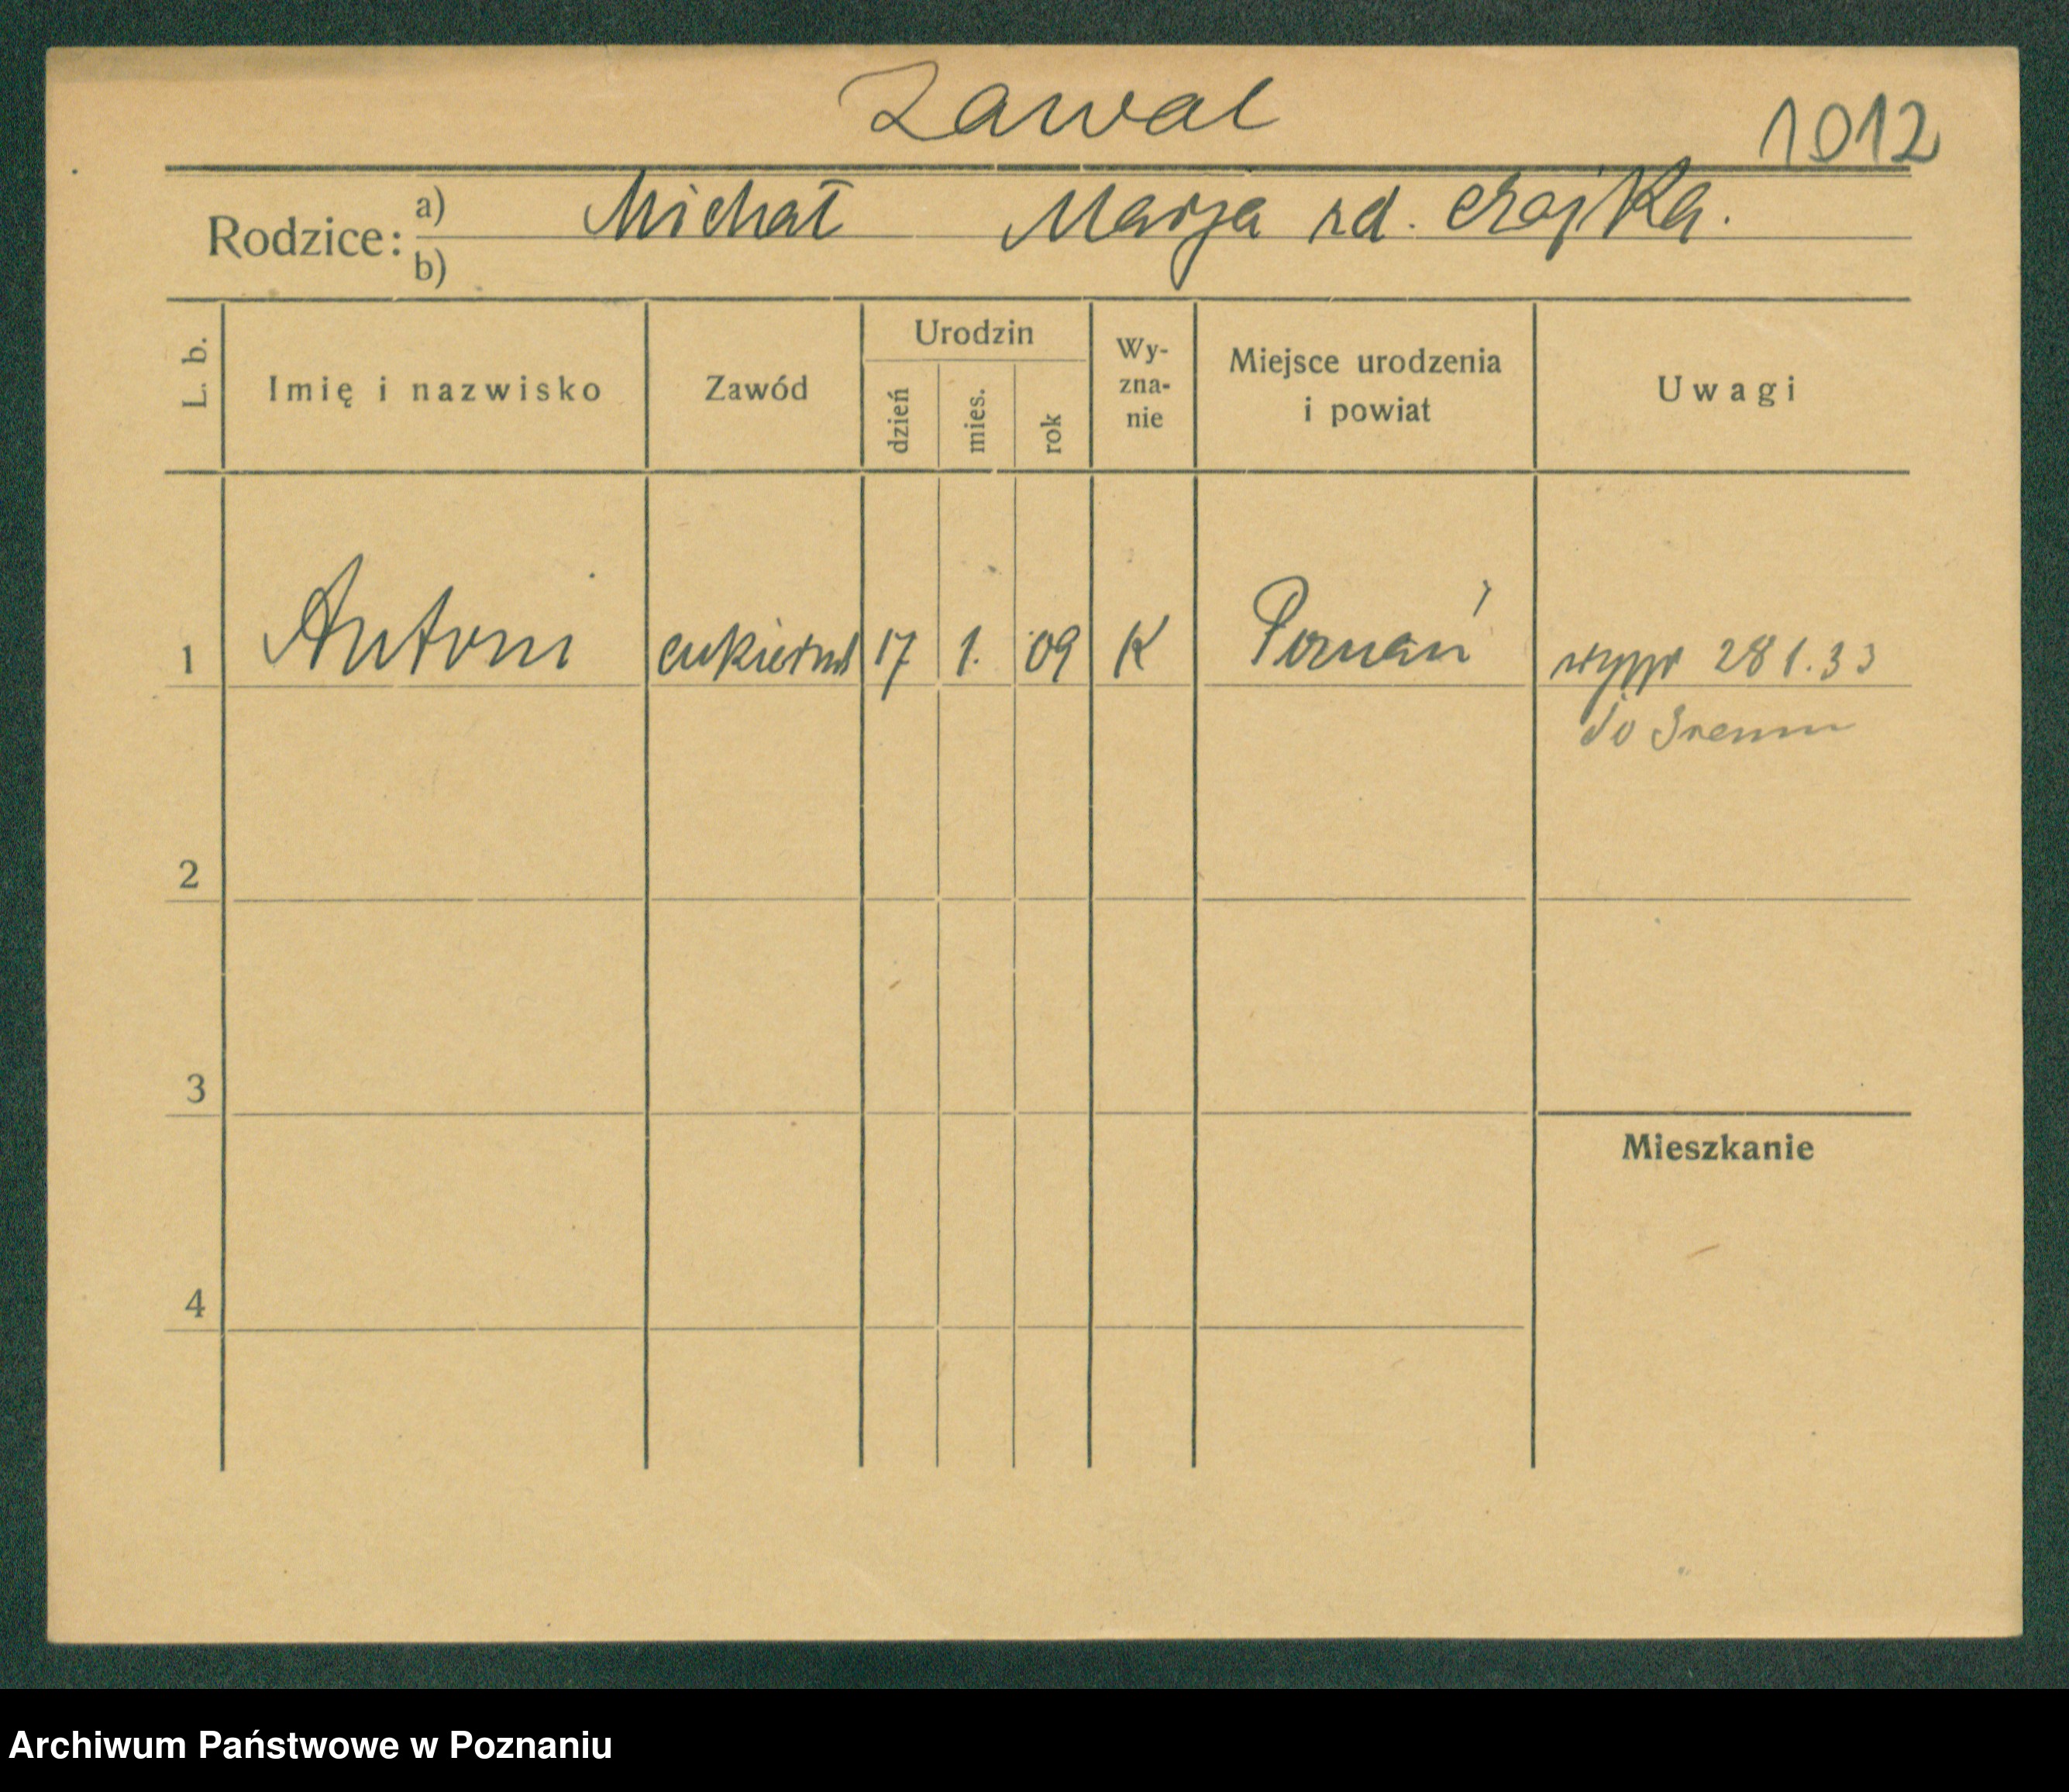 Zawal
1012
Rodzice: a) Michał Marja rd. Czajka.
b)
L. b.
Imię i nazwisko
Zawód
Urodzin
dzień
mies.
rok
Wy-
zna-
nie
Miejsce urodzenia
i powiat
Uwagi
1 Antoni cukiernik 17 1. 09 K Poznań wypr 28 1.33
do Sremu
2
3
Mieszkanie
4
Archiwum Państwowe w Poznaniu